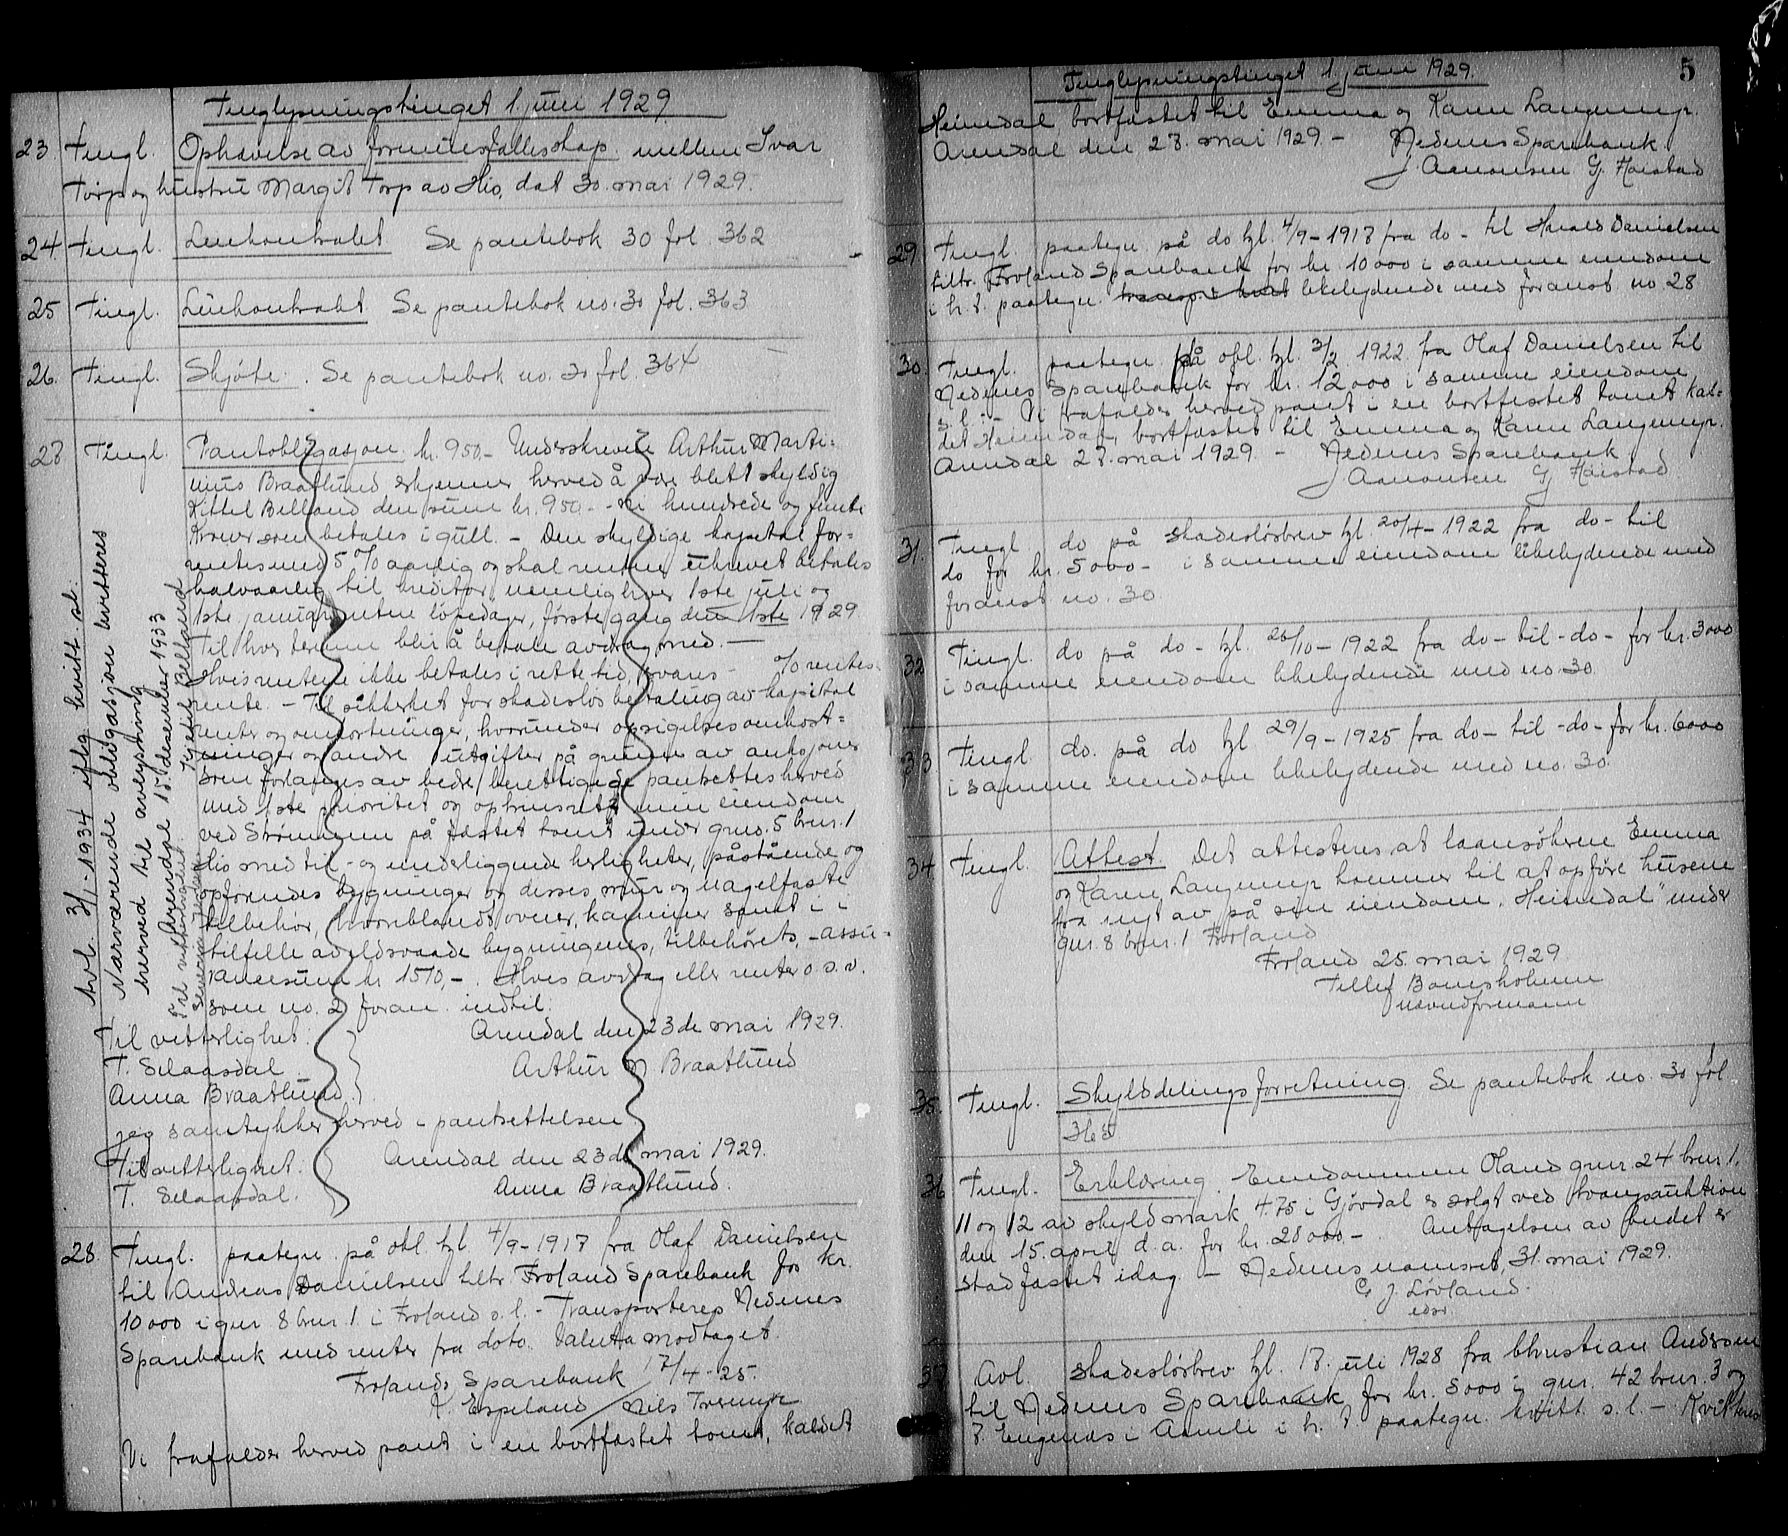 Tinglysningstinget 1. juni 1929
23 Tingl. Ophævelse av formuesfællesskap mellem Ivar
Torp og hustru Margit Torp av His, dat 30. mai 1929.
24 Tingl. Leiekontrakt Se pantebok 30 fol 362
25 Tingl. Leiekontrakt Se pantebok no. 30 fol. 363
26. Tingl. Skjøte. Se pantebok no. 30 fol. 364
27 Tingl. Pantobligasjon kr. 950.- Underskrevne Arthur Marti-
nius Braatlund erkjenner herved å være blitt skyldig
Kittel Belland den sum kr. 950.- - ni hundrede og femti
Kroner som betales i gull. - Den skyldige kapital for-
rentes med 5 % aarlig og skal renten ukrævet betales
halvaarlig til kreditor, nemlig hver 1ste juli og
1ste januar renten løpedager, første gang den 1ste 1929
Til hver termin blir å betale avdrag med. -
Hvis rentene ikke betales i rette tid, svares - % rentes-
rente. - Til sikkerhet for skadesløs betaling av kapital
renter og omkostninger, herunder opsigelsesomkost-
ninger og andre utgifter på grunn av auksjoner
som forlanges av bedre berettigede pantsettes herved
med 1ste prioritet og opknusrett min eiendom
ved Strømmen på fæstet tomt under gnr. 5 brnr. 1
His med til- og underliggende herligheter, påstående og
opførendes bygninger og disses mur og nagelfaste
tilbehør, hvoriblandt ovner, kaminer samt i
tilfelle av ildsvaade bygningens, tilbehørets, -assu-
ransesum kr 1570,-. Hvis avdrag eller renter o. s. v.
som no. 2 foran indtil:
Til vitterlighet. Arendal den 23de mai 1929.
T. Selaasdal Arthur M Braatlund
Anna Braatlund
jeg samtykker herved i pantsettelsen
Til vitterlighet. Arendal den 23de mai 1929.
T. Selaasdal. Anna Braatlund.
Avl. 3/1-1934 iflg kvitt. sl.
Nærværende obligasjon kvitteres
herved til avlysning
Arendal 15. desember 1933
Kjetil Belland
Til vitterlighet
28. Tingl. paategn. på obl tgl 4/9-1917 fra Olaf Danielsen
til Andreas Danielsen tiltr. Froland Sparebank for kr.
10 000 i gnr 8 brnr. 1 i Froland s. l. - Transporteres Nedenes
Sparebank med renter fra dato. Valuta modtaget.
Frolands Sparebank 17/4-25.
K. Espeland / Nils Tveimyr
Vi frafalder herved pant i en bortfæstet tomt, kaldet
Tinglysningstinget 1. juni 1929. 5
Heimdal, bortfæstet til Emma og Karen Langemyr.
Arendal den 27. mai 1929. - Nedenes Sparebank
J. Aanonsen G. Harstad
29 Tingl paategn. på do tgl. 4/9-1917 fra do - til Harald Danielsen
tiltr. Froland Sparebank for kr. 10 000 i samme eiendom
i h. t. paategn. likelydende med foranst. no 28
30. Tingl. paategn. på obl. tgl. 3/2 1922 fra Olaf Danielsen til
Nedenes Sparebank for kr. 12 000 i samme eiendom
s. l. :- Vi frafalder herved pant i en bortfæstet tomt kal-
det Heimdal, bortfæstet til Emma og Karen Langemyr.
Arendal 27. mai 1929. - Nedenes Sparebank
J. Aanonsen G. Harstad
31. Tingl do på skadesløsbrev tgl. 20/4-1922 fra do - til
do for kr. 5000 - i samme eiendom likelydende med
foranst. no. 30
32 Tingl. do på do - tgl. 26/10-1922 fra do - til - do - for kr. 3000
i samme eiendom likelydende med no. 30
33 Tingl do. på do tgl 29/9-1925 fra do - til - do - for kr. 6000
i samme eiendom likelydende med no. 30.
34 Tingl. Attest. Det attesteres at laansøkerne Emma
og Karen Langemyr kommer til at opføre husene
fra nyt av på sin eiendom "Heimdal" under
gnr. 8 brnr. 1 Froland
Froland 25. mai 1929.
Tellef Bomsholmen
35. Tingl. Skylddelingsforretning. Se pantebok no. 30 fol
365
36 Tingl. Erklæring. Eiendommen Oland gnr. 24 brnr 1.
11 og 12 av skyldmark 4.75 i Gjøvdal er solgt ved tvangsauktion
den 15. april d. a. for kr. 28 000 - Antagelsen av budet er
stadfæstet idag - Nedenes namsret, 31. mai 1929.
G. J. Løvland.
edsv.
37 Avl. skadesløsbrev tgl. 17. juli 1928 fra Christian Andersen
til Nedenes Sparebank for kr. 5000 i gnr. 42 brnr. 3 og
7 Engenes i Aamli i h. t. paategn. kvitt. s. l. - Kvitteres